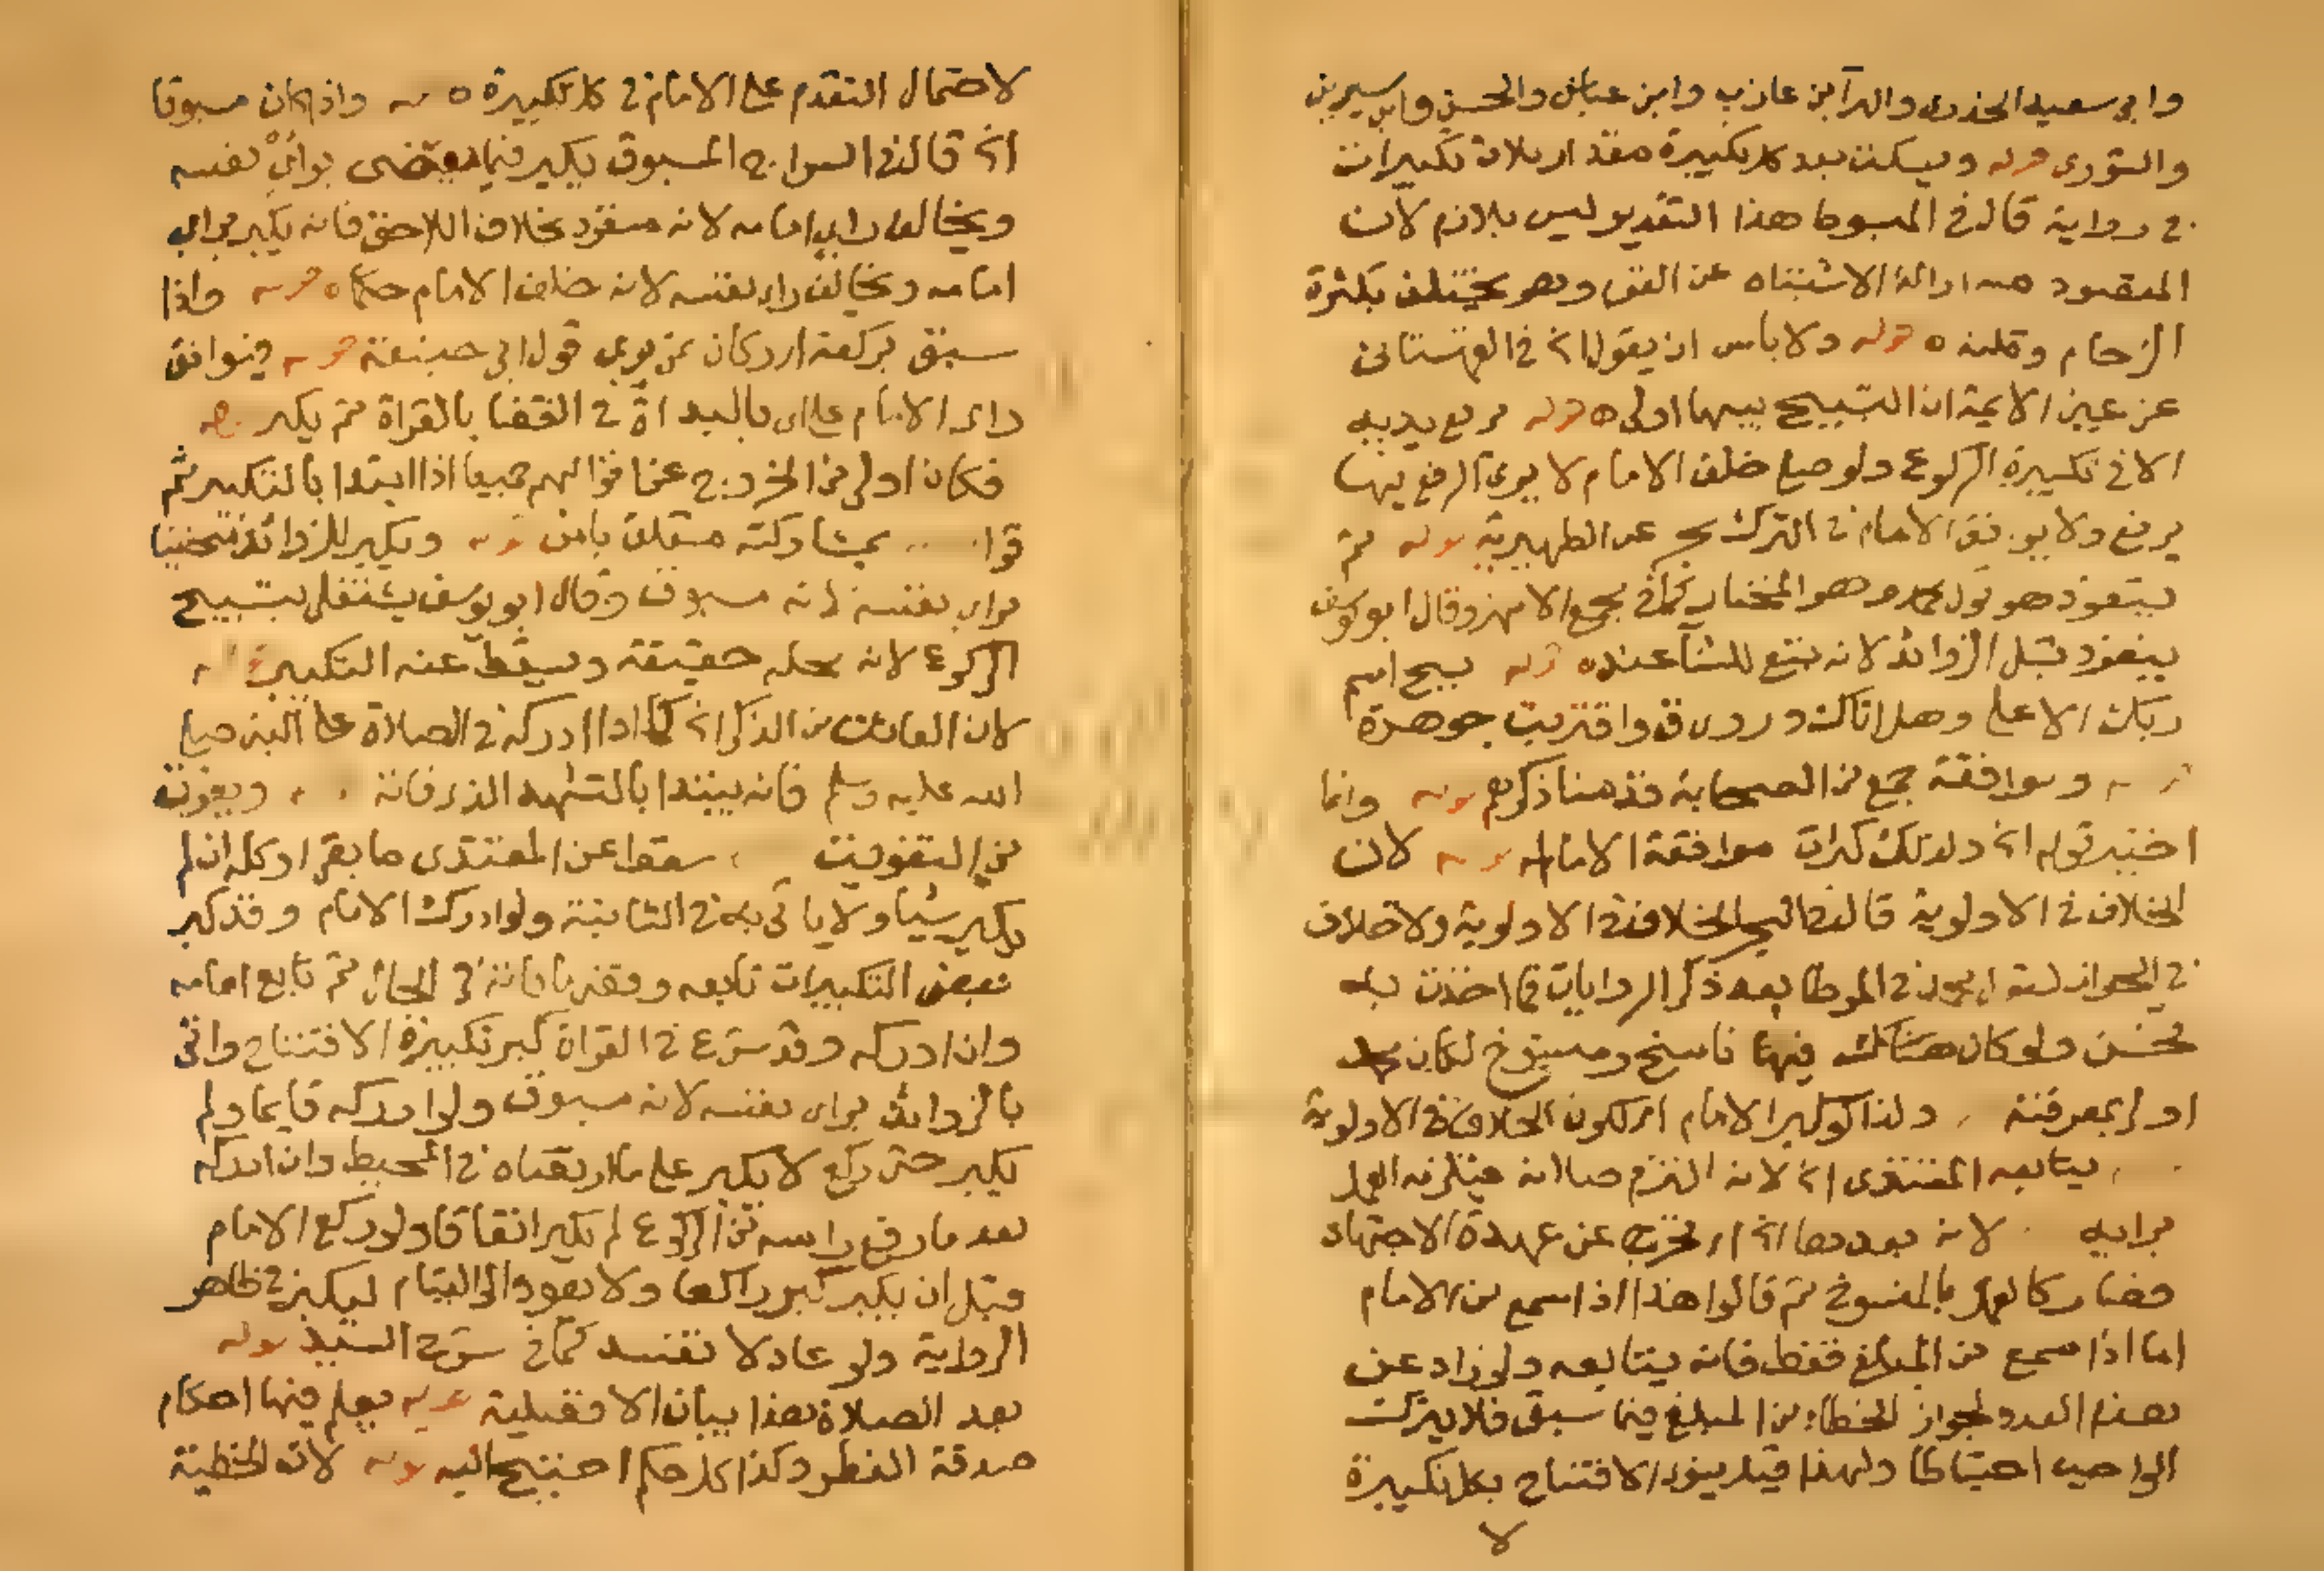 وابي سعيد الخدري والبرآ بن عازب وابن عباس والحسن وابن سيرين
والثوري قوله ويسكت بعد كل تكبيرة مقدار ثلاث تكبيرات
في رواية قال في المبسوط هذا التقدير ليس بلازم لان
المقصود منه ازالة الاشتباه عن القوم وهو يختلف بكثرة
الزحام وقلته ه قوله ولا باس ان يقول الخ في القهستاني
عن عين الايمة ان التسبيح بينهما اولى ه قوله يرفع يديه
الا في تكبيرة الركوع ولو صلى خلف الامام لا يرى الرفع فيها
يرفع ولا يوافق الامام في الترك بحر عن الظهيرية قوله ثم
يتعوذ هو قول محمد وهو المختار كما في مجمع الانهر وقال ابو يوسف
يتعوذ قبل الزوائد لانه تبع للثنآ عنده ه قوله سبح اسم
ربك الاعلى وهل اتاك وروى ق واقتربت جوهرة
وموافقة جمع من الصحابة قدمنا ذكرهم قوله وانما
اختير قوله الخ ولذلك موافقة الامام قوله لان
الخلاف في الاولوية قال في البحر الخلاف في الاولوية ولا خلاف
في الجواز لقول محمد في الموطا بعد ذكر الروايات فما اخذت به
فحسن ولو كان هناك فيها ناسخ ومنسوخ لكان محمد
اولى بمعرفته ولذا لو كبر الامام لكون الخلاف في الاولوية
يتابعه المقتدى الخ لانه التزم صلاته فيلزمه العمل
برايه لانه بعدها الخ عن عهدة الاجتهاد
فصار كالعمل بالمنسوخ ثم قالوا هذا اذا سمع من الامام
اما اذا سمع من المبلغ فقط فانه يتابعه ولو زاد عن
هذا العدد لجواز الخطاء من المبلغ فيما سبق فلا يترك
الواجب احتياطا ولهذا قيل ينوي الافتتاح بكل تكبيرة
لا
لاحتمال التقدم على الامام في كل تكبيرة ه قوله واذا كان مسبوقا
الخ قال في السراج المسبوق يكبر فيما يقضى براي نفسه
ويخالف راي امامه لانه منفرد بخلاف اللاحق فانه يكبر براي
امامه ويخالف راي نفسه لانه خلف الامام حكما ه قوله واذا
سبق بركعة اى وكان ممن يرى قول ابي حنيفة قوله فيوافق
راى الامام على اى بالبداءة في القضا بالقراة ثم يكبر قوله
فكان اولى من الخروج عن اقوالهم جميعا اذا ابتدا بالتكبير ثم
قرا بمشاركته متعلق بامن قوله ويكبر للزوائد منحنيا
براي نفسه لانه مسبوق وقال ابو يوسف يشتغل بتسبيح
الركوع لانه محله حقيقة ويسقط عنه التكبير قوله
لان الفائت من الذكر الخ كما اذا ادركه في الصلاة على النبي صلى
الله عليه وسلم فانه يبتدا بالتشهد الذى فاته ويفوت
من التفويت سقط عن المقتدى ما بقى او كله ان لم
يكبر شيا ولا ياتى به في الثانية ولو ادرك الامام وقد كبر
بعض التكبيرات تابعه وقضى ما فاته في الحال ثم تابع امامه
وان ادركه وقد شرع في القراة كبر تكبيرة الافتتاح واتى
بالزوائد براى نفسه لانه مسبوق ولو ادركه قايما ولم
يكبر حتى ركع لا يكبر على ما ارتضاه في المحيط وان ادركه
بعد ما رفع راسه من الركوع لم يكبر اتفاقا ولو ركع الامام
قبل ان يكبر كبر راكعا ولا يعود الى القيام ليكبر في ظاهر
الرواية ولو عاد لا تفسد كما في شرح السيد قوله
بعد الصلاة هذا بيان الافضلية قوله يعلم فيها احكام
صدقة الفطر وكذا كل حكم احتيج اليه قوله لان الخطبة